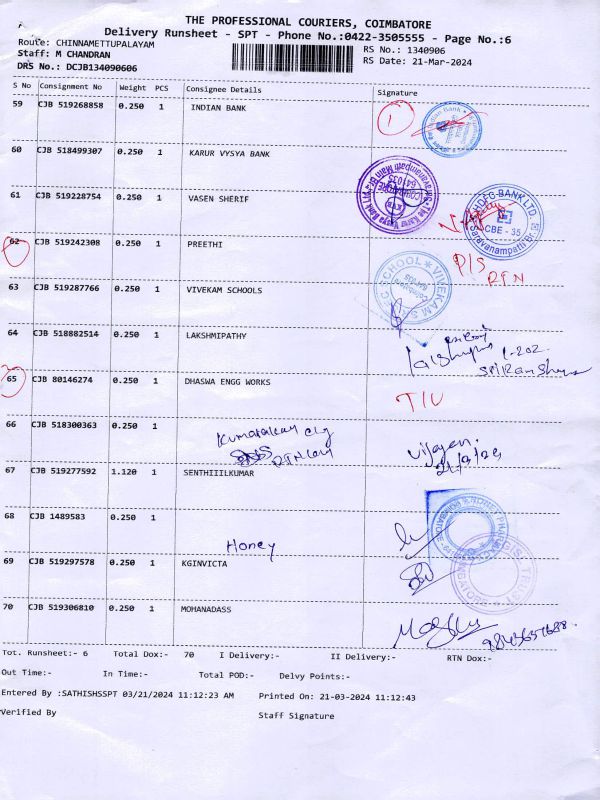 THE PROFESSIONAL COURIERS, COIMBATORE
Delivery Runsheet - SPT - Phone No.:0422-3505555 - Page No.:6
Route: CHINNAMETTUPALAYAM RS No.: 1340906
Staff: M CHANDRAN RS Date: 21-Mar-2024
DRS No.: DCJB134090606
S No Consignment No Weight PCS Consignee Details Signature
59 CJB 519268858 0.250 1 INDIAN BANK 1
60 CJB 518499307 0.250 1 KARUR VYSYA BANK
641035
61 CJB 519228754 0.250 1 VASEN SHERIF
HDFC BANK LTD.
CBE - 35
Saravanampatti Br.
62 CJB 519242308 0.250 1 PREETHI P/S
RTN
63 CJB 519287766 0.250 1 VIVEKAM SCHOOLS
64 CJB 518882514 0.250 1 LAKSHMIPATHY
1-202
65 CJB 80146274 0.250 1 DHASWA ENGG WORKS T/U
66 CJB 518300363 0.250 1
67 CJB 519277592 1.120 1 SENTHIIILKUMAR
68 CJB 1489583 0.250 1 Honey
69 CJB 519297578 0.250 1 KGINVICTA
70 CJB 519306810 0.250 1 MOHANADASS
Tot. Runsheet:- 6 Total Dox:- 70 I Delivery:- II Delivery:- RTN Dox:-
Out Time:- In Time:- Total POD:- Delvy Points:-
Entered By :SATHISHSSPT 03/21/2024 11:12:23 AM Printed On: 21-03-2024 11:12:43
Verified By Staff Signature